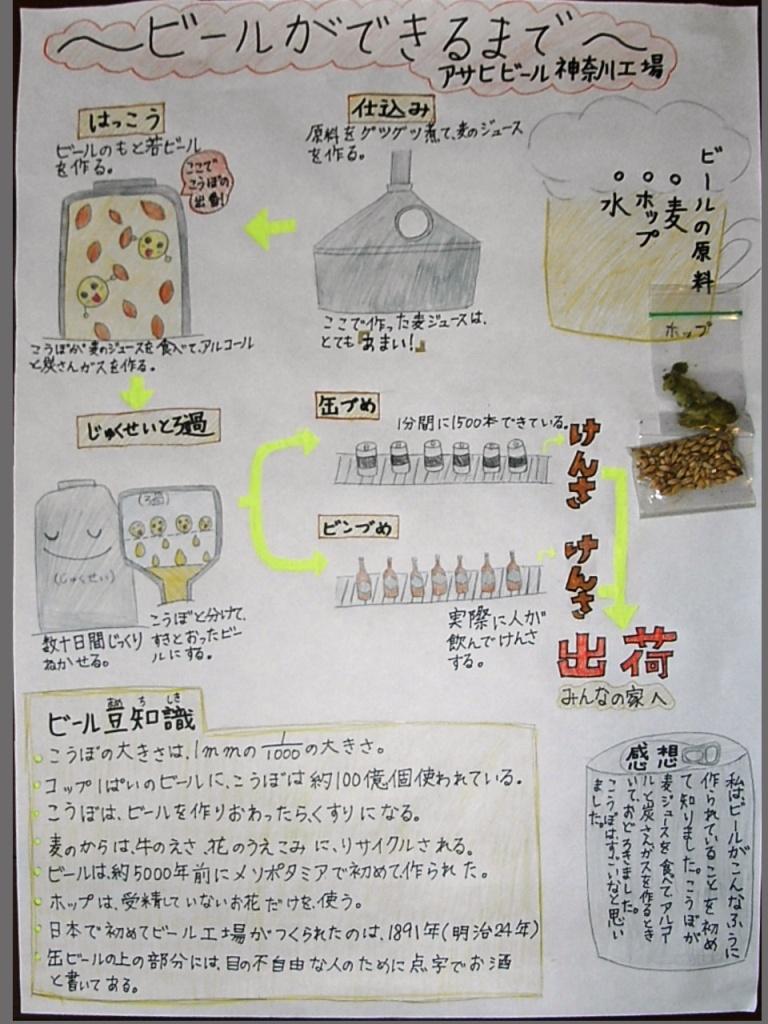 〜ビールができるまで〜
アサヒビール神奈川工場
ビールの原料
麦
ホップ
水
ホップ
仕込み
原料をグツグツ煮て、麦のジュース
を作る。
ここで作った麦ジュースは、
とてもあまい!
はっこう
ビールのもと若ビール
を作る。
ここで
こうぼの
出番!
こうぼが麦のジュースを食べて、アルコール
と炭さんガスを作る。
じゅくせいとろ過
(じゅくせい)
(ろ過)
数十日間じっくり
ねかせる。
こうぼと分けて、
すきとおったビー
ルにする。
缶づめ
1分間に1500本できている。
けんさ
ビンづめ
けんさ
実際に人が
飲んでけんさ
する。
出荷
みんなの家へ
ビール豆知識
まめ ち しき
こうぼの大きさは、1mmの1/1000の大きさ。
コップ1ぱいのビールに、こうぼは約100億個使われている。
こうぼは、ビールを作りおわったら、くすりになる。
麦のからは、牛のえさ、花のうえこみに、リサイクルされる。
ビールは、約5000年前にメソポタミアで初めて作られた。
ホップは、受精していないお花だけを使う。
日本で初めてビール工場がつくられたのは、1891年(明治24年)
缶ビールの上の部分には、目の不自由な人のために点字でお酒
と書いてある。
感想
私は、ビールがこんなふうに
作られていることを初め
て知りました。こうぼが
麦ジュースを食べてアルコー
ルと炭さんガスを作るとき
いて、おどろきました。
こうぼはすごいなと思い
ました。